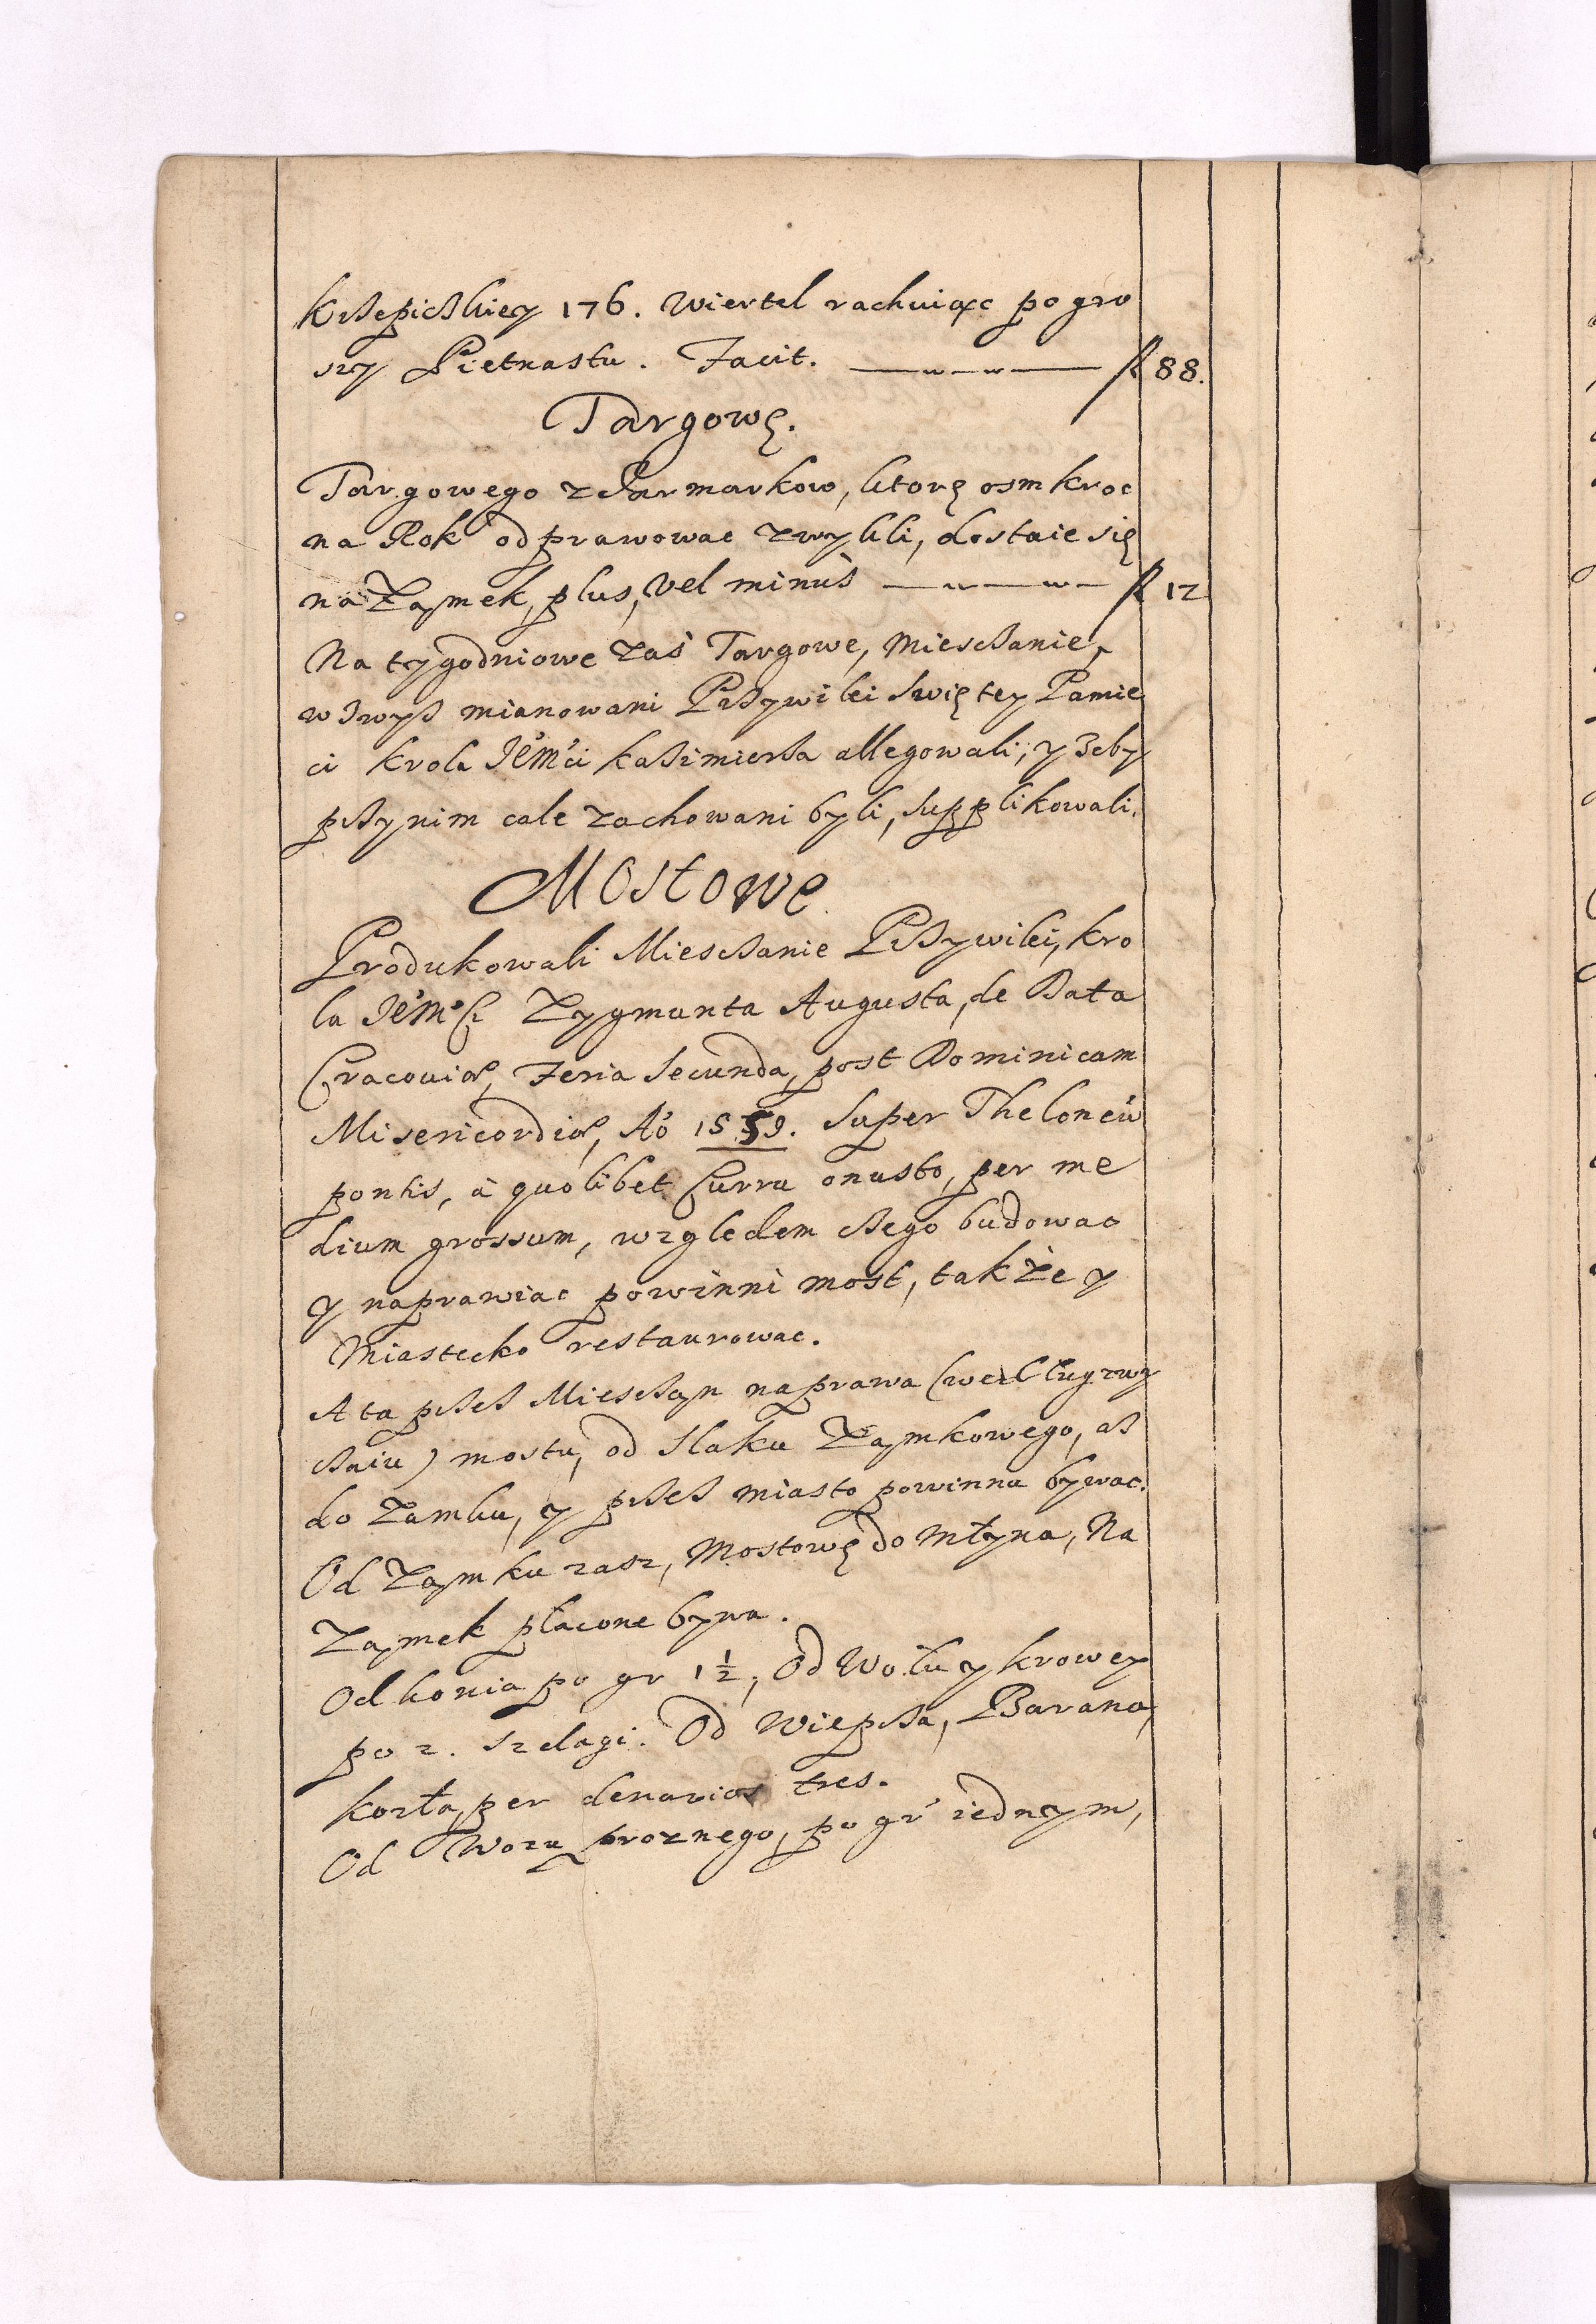 Krzepickiey 176. Wiertel rachuiąc po gro
szy Pietnastu. Facit. fl 88.
Targowę.
Targowego z Jarmarkow, ktorę osm kroc
na Rok odprawowac zwykli, dostaie się
na Zamek, plus, vel minùs fl 12
Na tygodniowe zaś Targowe, Miesczanie,
wzwyż mianowani Przywilei Swiętey Pamie
ci krola Jeo Mci Kazimierza allegowali, y zeby
przy nim cale zachowani byli, supplikowali.
Mostowę
Produkowali Miesczanie Przywilei, kro
la Jeo Mci Zygmunta Augusta, de Data
Cracoviæ, Feria Secunda, post Dominicam
Misericordiæ, Ao 1559. Super Theloneu
pontis, à quolibet Curru onusto, per me
dium grossum, wzgledem czego budowac
y naprawiac powinni most, także y
Miastecko restaurowac.
A ta przez Miesczan naprawa (wedlug zwy
czaiu) mostu, od Slaku Zamkowego, az
do Zamku, y przez miasto powinna bywac.
Od Zamku zasz, Mostowę do Młyna, Na
Zamek płacone bywa.
Od konia po gr 1½, Od Wołu y krowey
po 2. szelagi. Od Wieprza, Barana,
kozła, per denarios tres.
Od Wozu proznego, po gr iednym,